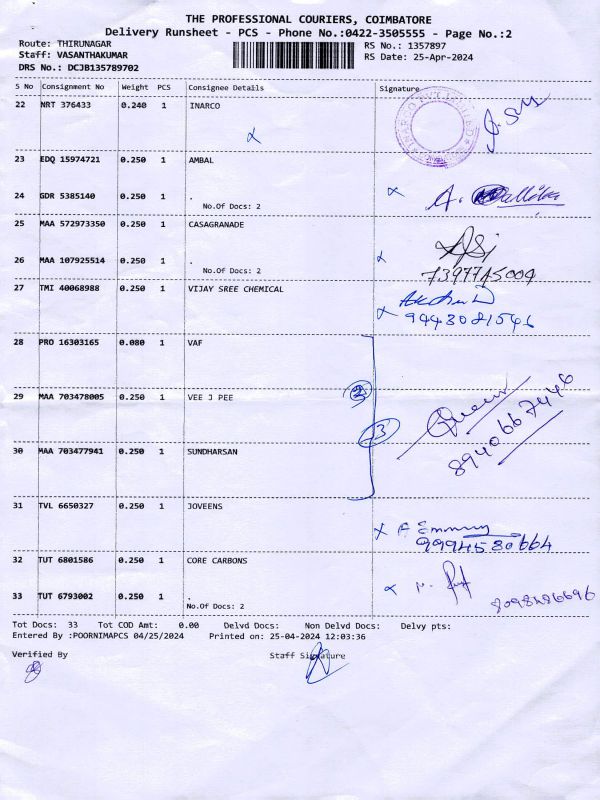 THE PROFESSIONAL COURIERS, COIMBATORE
Delivery Runsheet - PCS - Phone No.:0422-3505555 - Page No.:2
Route: THIRUNAGAR RS No.: 1357897
Staff: VASANTHAKUMAR RS Date: 25-Apr-2024
DRS No.: DCJB135789702
S No Consignment No Weight PCS Consignee Details Signature
22 NRT 376433 0.240 1 INARCO
23 EDQ 15974721 0.250 1 AMBAL
24 GDR 5385140 0.250 1 .
No.Of Docs: 2
25 MAA 572973350 0.250 1 CASAGRANADE
26 MAA 107925514 0.250 1 .
No.Of Docs: 2
7397745009
27 TMI 40068988 0.250 1 VIJAY SREE CHEMICAL
9443081546
28 PRO 16303165 0.080 1 VAF
29 MAA 703478005 0.250 1 VEE J PEE 2
30 MAA 703477941 0.250 1 SUNDHARSAN 3
8940667446
31 TVL 6650327 0.250 1 JOVEENS
9994580664
32 TUT 6801586 0.250 1 CORE CARBONS
33 TUT 6793002 0.250 1 .
No.Of Docs: 2
Tot Docs: 33 Tot COD Amt: 0.00 Delvd Docs: Non Delvd Docs: Delvy pts:
Entered By :POORNIMAPCS 04/25/2024 Printed on: 25-04-2024 12:03:36
Verified By Staff Signature